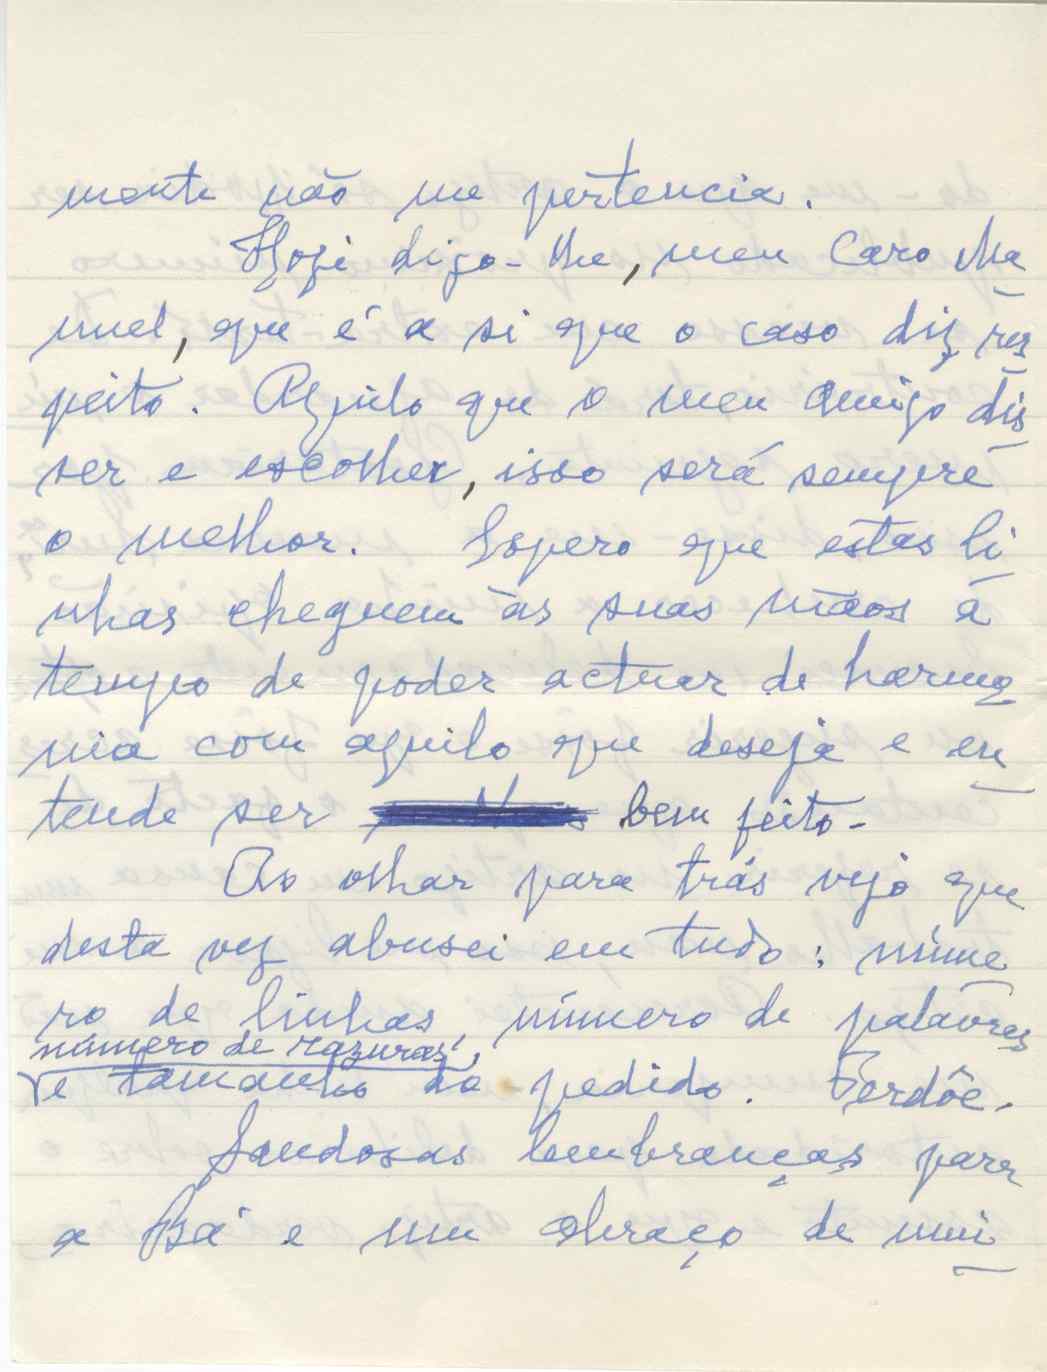 mente não me pertencia.
Hoje digo-lhe, meu Caro Ma
nuel, que é a si que o caso diz res
peito. Aquilo que o meu Amigo dis
ser e escolher, isso será sempre
o melhor. Espero que estas li
nhas cheguem às suas mãos a
tempo de poder actuar de harmo
nia com aquilo que deseja e en
tende ser bem feito.
Ao olhar para trás vejo que
desta vez abusei em tudo: núme
ro de linhas, número de palavras
número de razuras,
e tamanho do pedido. Perdôe.
Saudosas lembranças para
a Bá e um abraço de mui